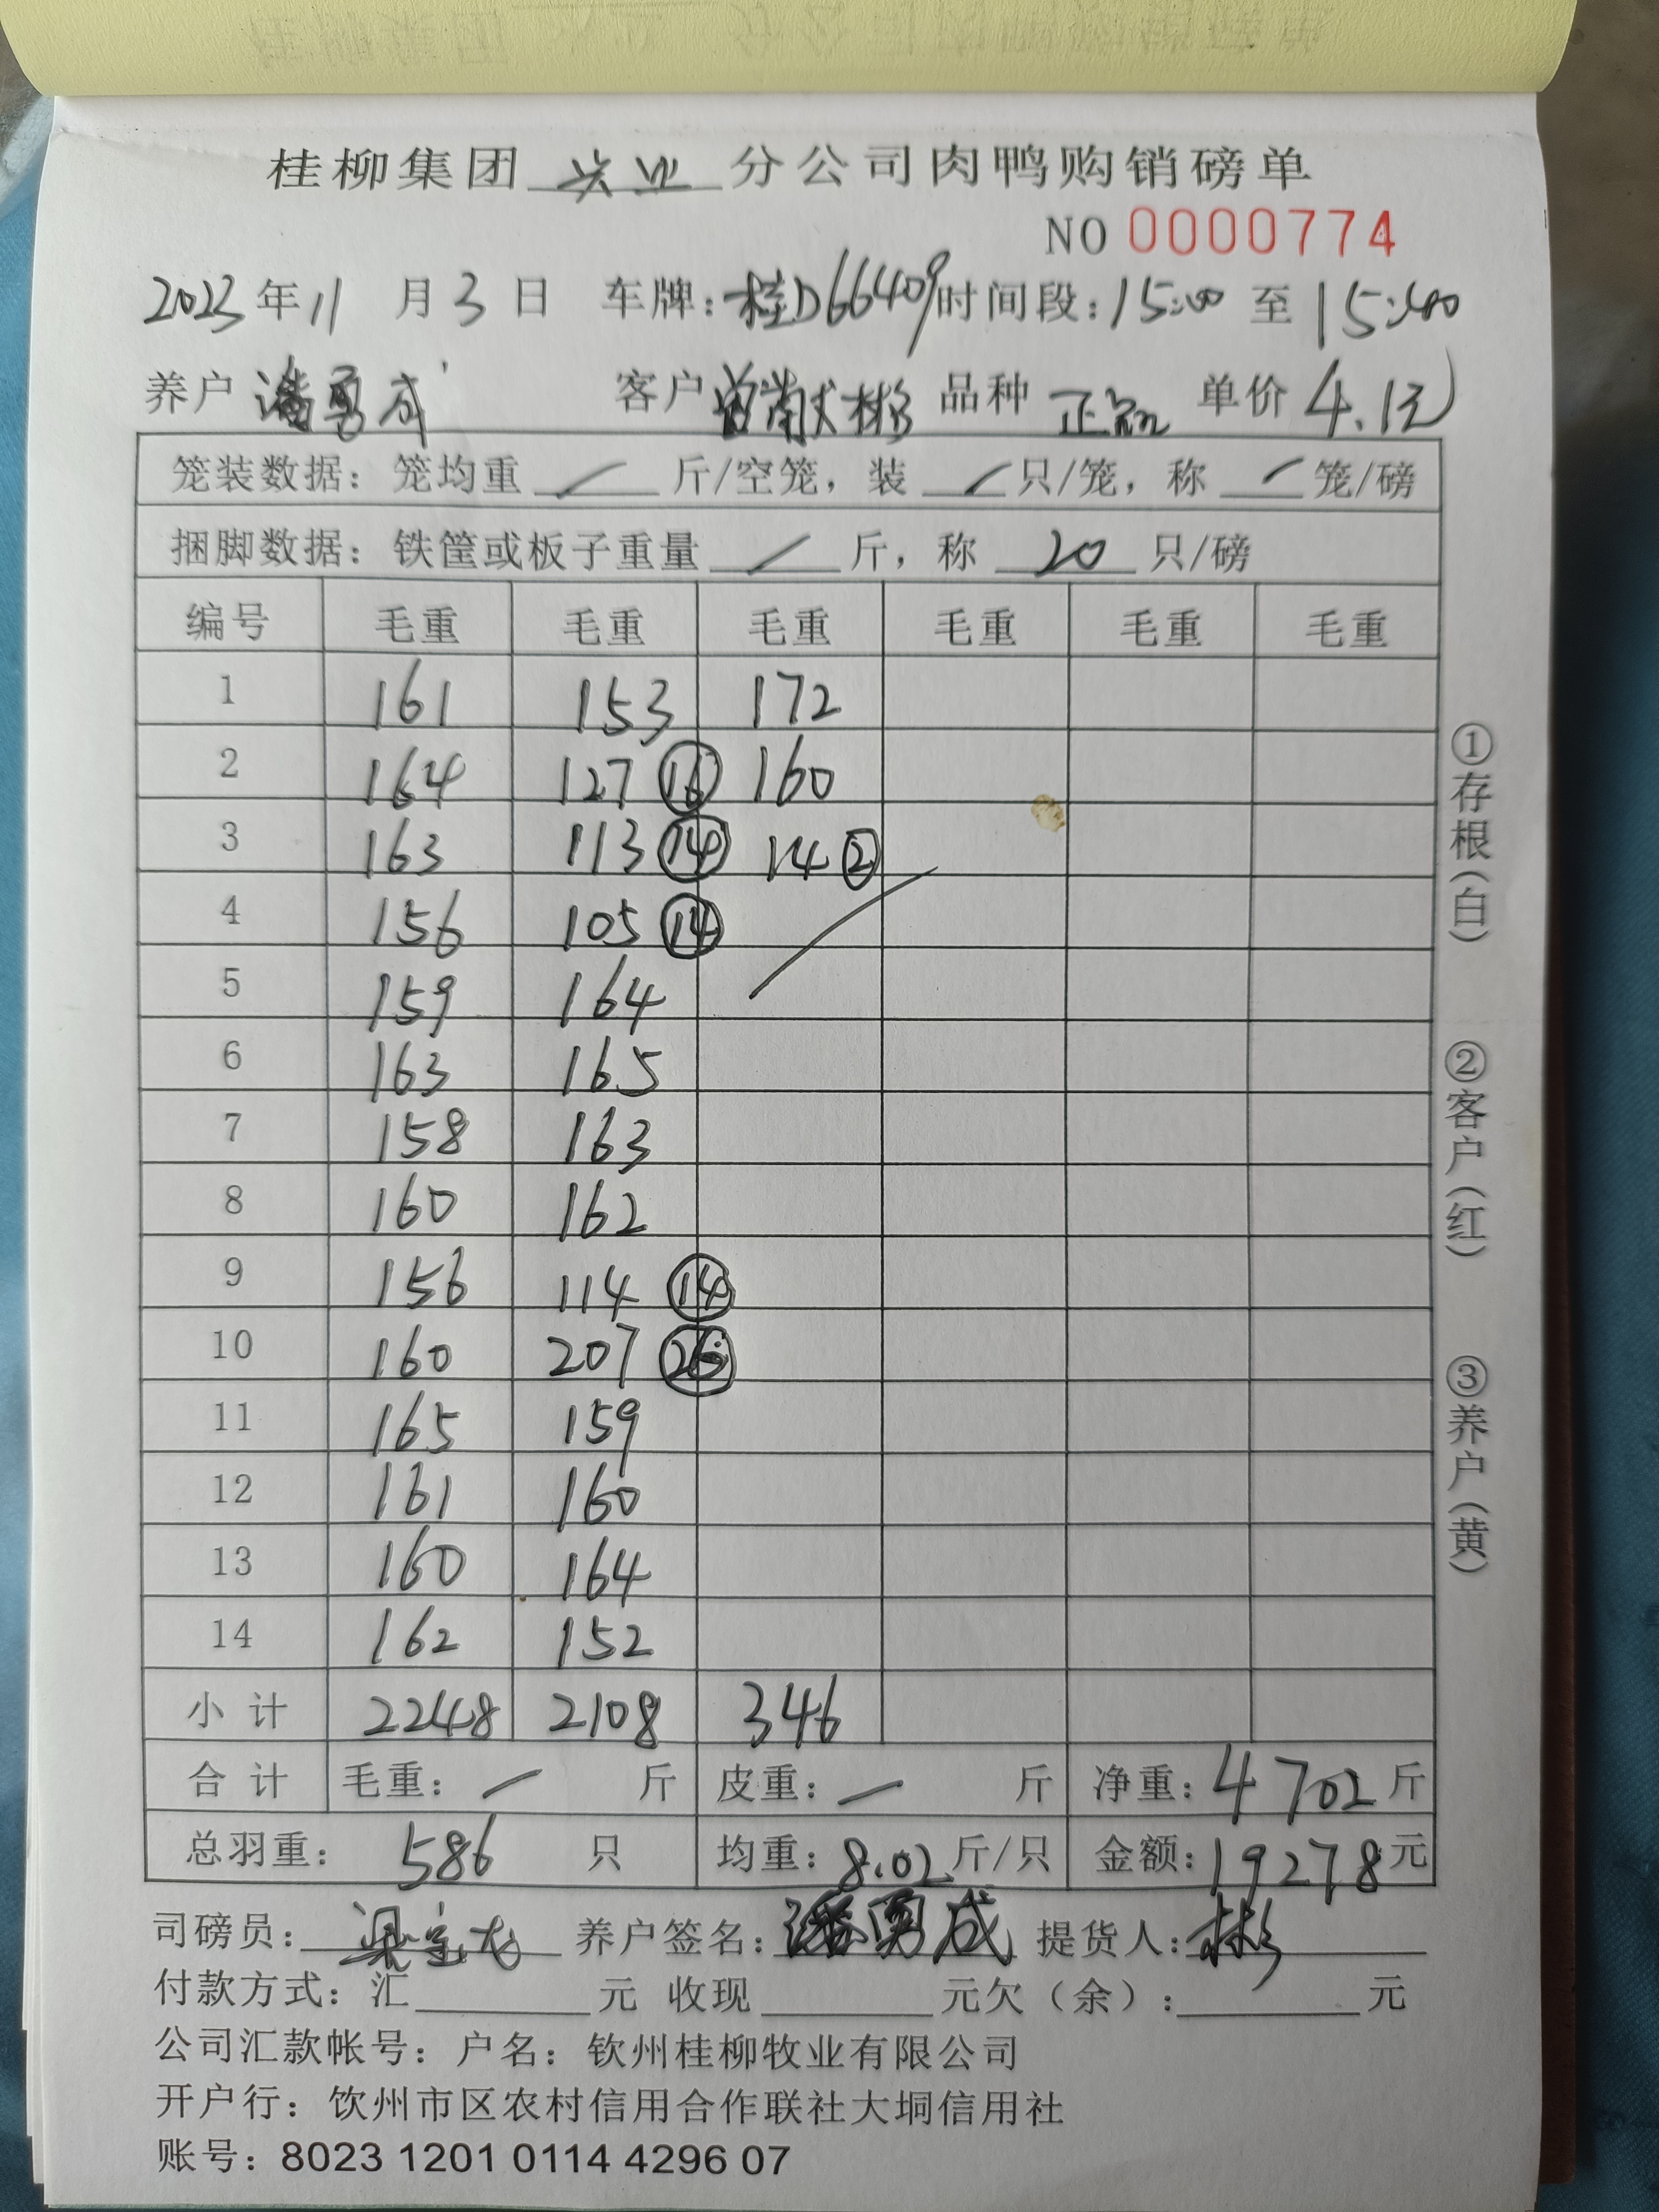 桂柳集团 兴业 分公司肉鸭购销磅单
NO 0000774
2023年11月3日 车牌:桂D66409 时间段:15:00 至 15:40
养户 潘勇成 客户 曾献彬 品种 正品 单价 4.1元
笼装数据:笼均重 / 斤/空笼,装 / 只/笼,称 / 笼/磅
捆脚数据:铁筐或板子重量 / 斤,称 20 只/磅
编号 毛重 毛重 毛重 毛重 毛重 毛重
1 161 153 172
2 164 127 ⑯ 160
3 163 113 ⑭ 14 ②
4 156 105 ⑭
5 159 164
6 163 165
7 158 163
8 160 162
9 156 114 ⑭
10 160 207 ㉖
11 165 159
12 161 160
13 160 164
14 162 152
小计 2248 2108 346
合计 毛重:— 斤 皮重:— 斤 净重:4702斤
总羽重: 586 只 均重:8.02斤/只 金额:19278元
司磅员: 养户签名:潘勇成 提货人:彬
付款方式:汇 元 收现 元欠(余): 元
公司汇款帐号:户名:钦州桂柳牧业有限公司
开户行:饮州市区农村信用合作联社大垌信用社
账号:8023 1201 0114 4296 07
①存根(白)
②客户(红)
③养户(黄)